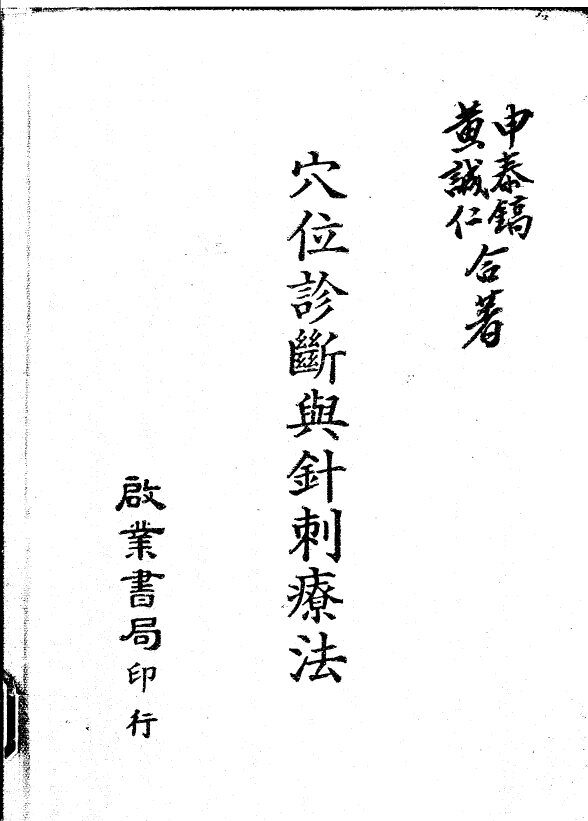 申泰鎬
黃誠仁
合著
穴位診斷與針刺療法
啟業書局印行